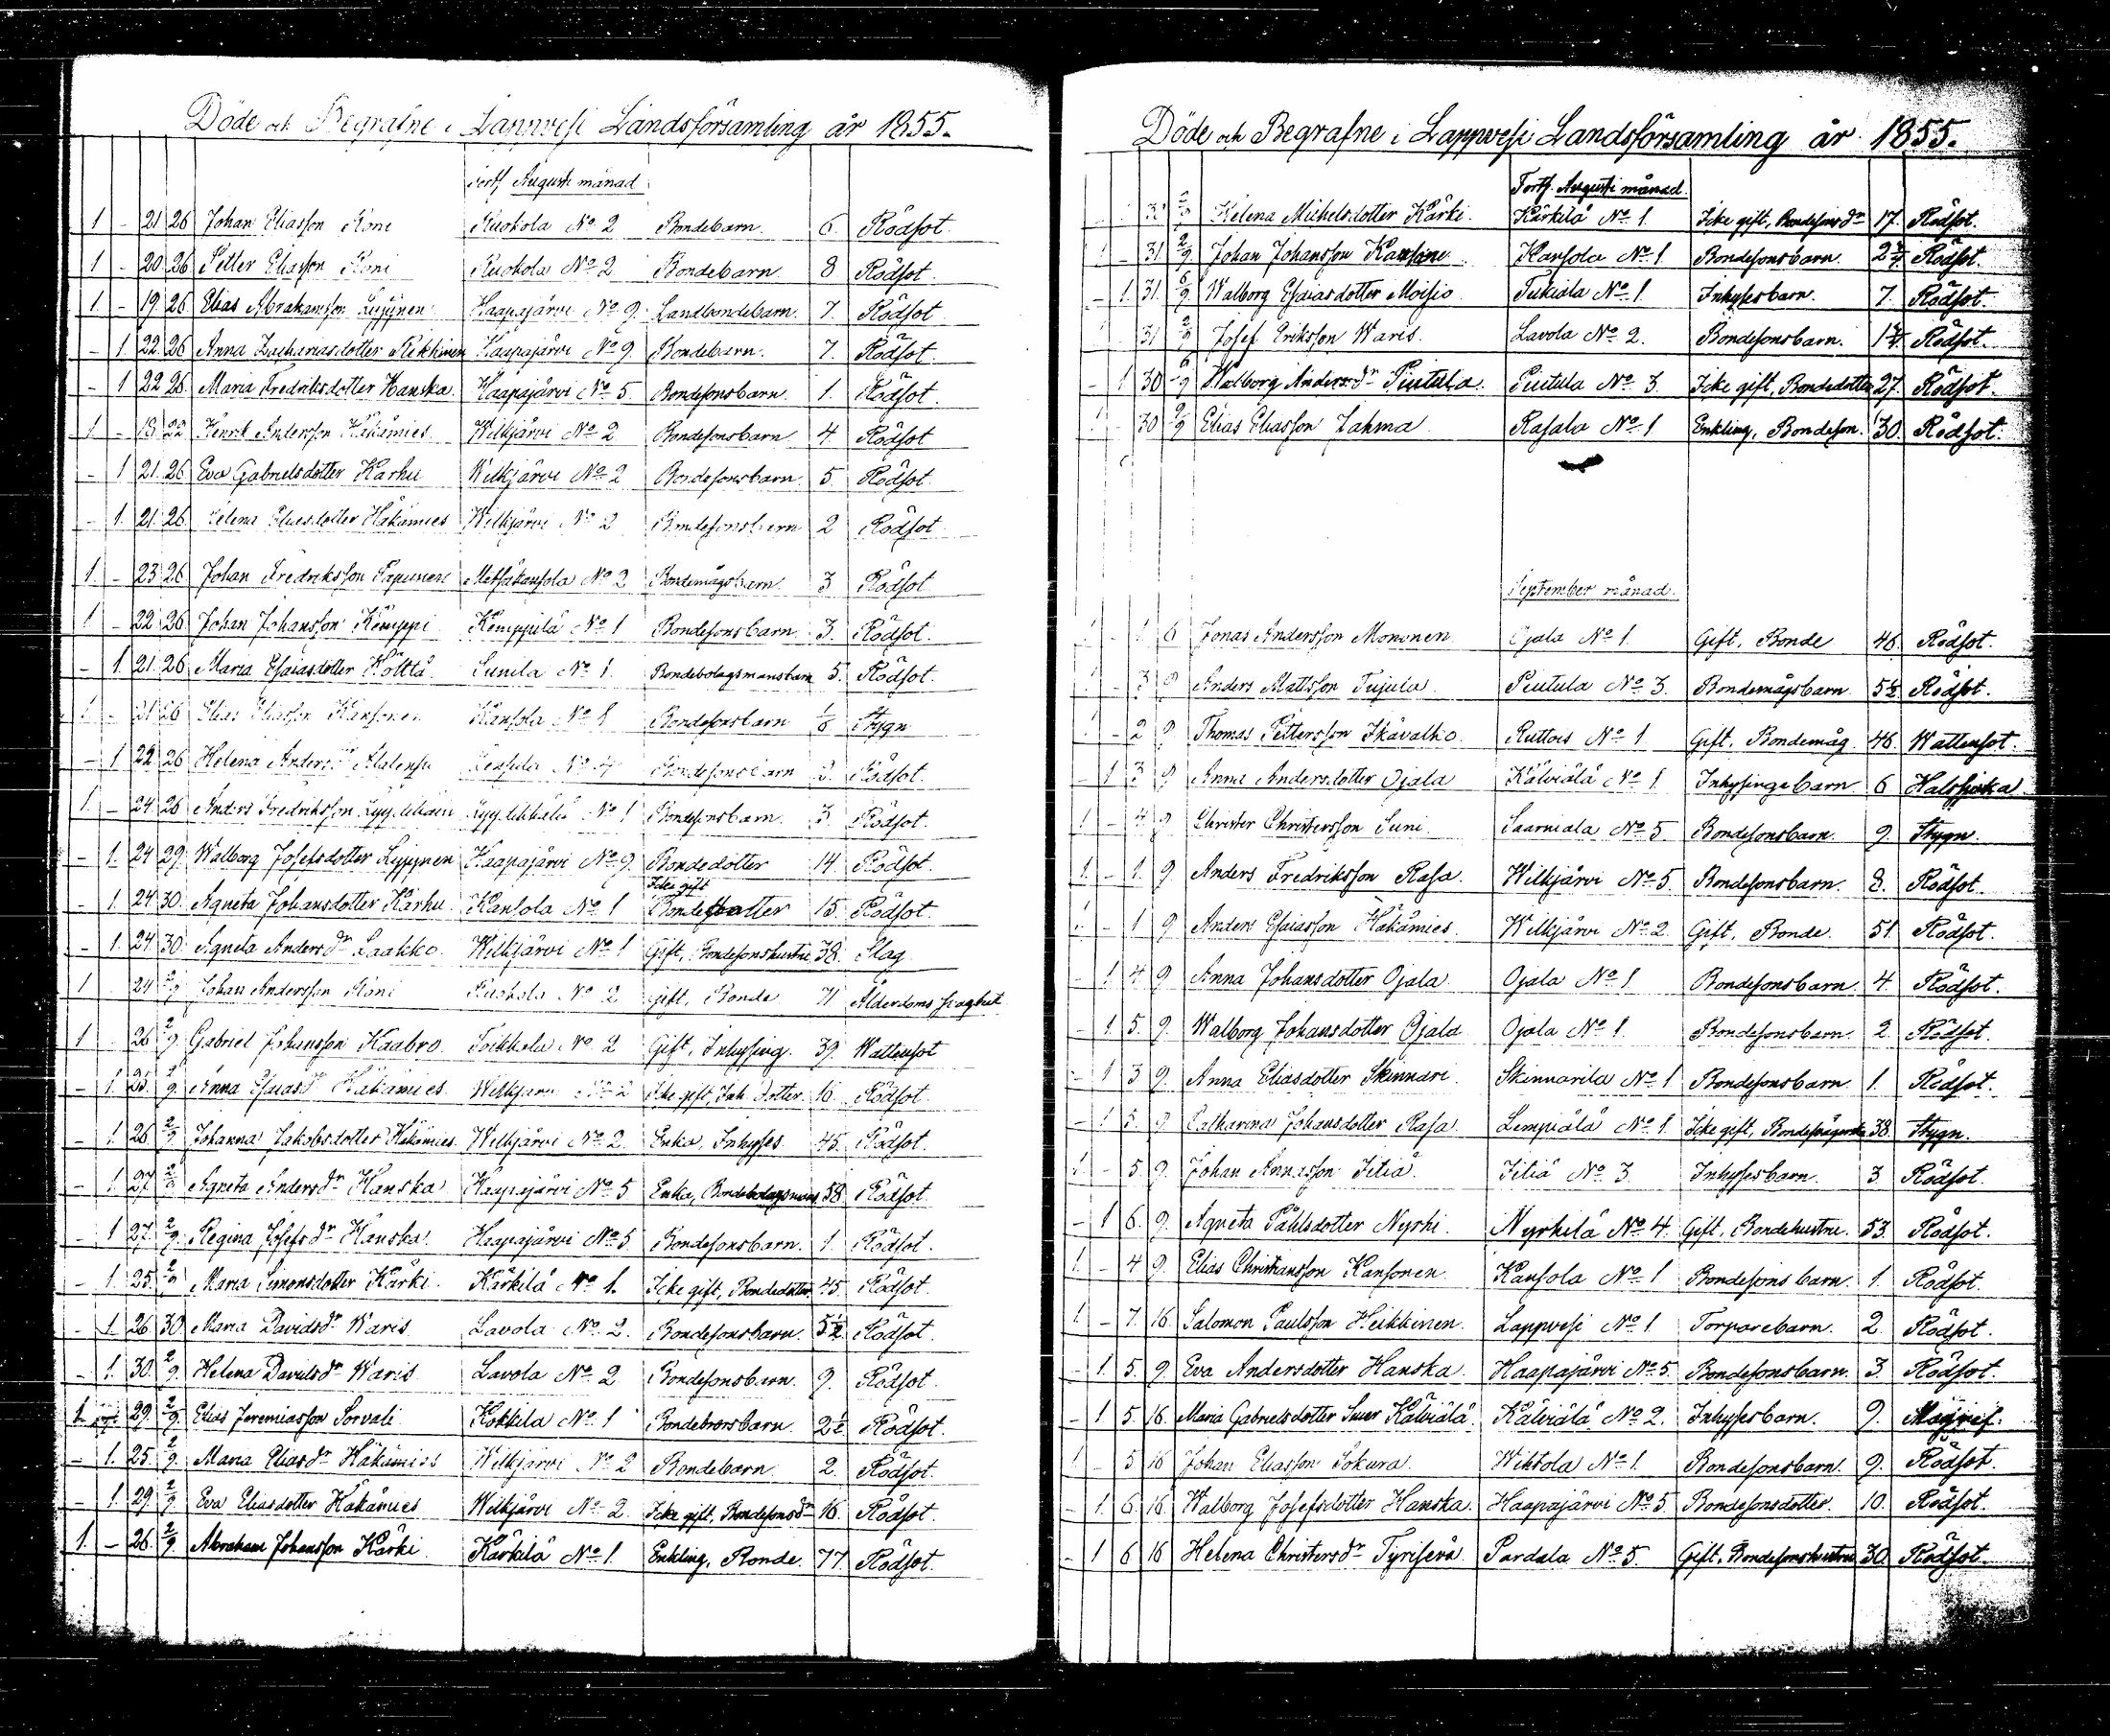 Döde och Begrafne i Lappvesi Landsförsamling år 1855.
Forts. Augusti månad
1 - 21 26 Johan Eliasson Roni Ruohola No 2 Bondebarn 6 Rödsot.
1 - 20 26 Petter Eliasson Roni Ruohola No 2 Bondebarn 8 Rödsot.
1 - 19 26 Elias Abrahamsson Lyyjynen Haapajärvi No 9. Landbondebarn. 7. Rödsot
- 1 22 26 Anna Zachariasdotter Rikkinen Haapajärvi No 9. Bondebarn. 7. Rödsot
- 1 22 26 Maria Fredriksdotter Hanska. Haapajärvi No 5. Bondesonsbarn 1. Rödsot.
1 - 18 22 Henrik Andersson Häkämies Wilkjärvi No 2 Bondesonsbarn 4. Rödsot
- 1 21 26 Eva Gabrielsdotter Karhu Wilkjärvi No 2 Bondesonsbarn 5. Rödsot
- 1. 21. 26. Helena Eliasdotter Häkämies Wilkjärvi No 2 Bondesonsbarn 2 Rödsot
1. - 23 26 Johan Fredriksson Tapunen Metsäkansola No 2 Bondemågsbarn 3 Rödsot.
1 - 22 26 Johan Johansson Kemppi Kemppilä No 1 Bondesonsbarn 3. Rödsot.
- 1. 21. 26 Maria Esaiasdotter Költtä Sunila No 1. Bondebolagsmansbarn 5. Rödsot.
1 - 21 26 Elias Eliasson Kansonen Kansola No 1 Bondesonsbarn Stygn
- 1 22 26 Helena Andersdr Bondesonsbarn 3. Rödsot.
1. - 24 26 Anders Fredriksson No 1 Bondesonsbarn. 3. Rödsot.
- 1. 24 29. Walborg Josefsdotter Lyyjynen Haapajärvi No 9. Bondedotter 14. Rödsot.
- 1. 24 30. Agneta Johansdotter Karhu. Kansola No 1 Icke gift Bondedotter 15. Rödsot.
- 1. 24 30. Agneta Andersdr Laakko. Wilkjärvi No 1 Gift, Bondesonshustru 38. Slag
1 24 2/9 Johan Andersson Roni Ruohola No 2 Gift, Bonde 71 Ålderdoms svaghet
1 26 2/9 Gabriel Johansson Kaabro. Toikkala No 2 Gift, Inhysing. 39. Wattusot
- 1. 25. 2/9. Anna Esaiasdr Häkämies Wilkjärvi No 2 Icke gift, Inh. dotter. 16. Rödsot.
- 1. 26 2/9 Johanna Jakobsdotter Häkämies. Wilkjärvi No 2. Enka, Inhyses. 45. Rödsot.
- 1. 27. 2/9 Agneta Andersdr Hanska Haapajärvi No 5 Enka, Bondebolagsmans 58. Rödsot.
- 1 27. 2/9. Regina Josefsdr Hanska. Haapajärvi No 5. Bondesonsbarn. 1. Rödsot.
- 1 25. 2/9 Maria Simonsdotter Kärki. Kärkilä No 1. Icke gift, Bondedotter. 45. Rödsot.
- 1. 26. 30. Maria Davidsdr Waris Lavola No 2. Bondesonsbarn. 5½ Rödsot.
- 1. 30. 2/9. Helena Davidsdr Waris Lavola No 2 Bondesonsbarn 9. Rödsot.
1. 29. 2/9. Elias Jeremiasson Sorvali Kokkila No 1 Bondebrorsbarn. 2½. Rödsot.
- 1. 25. 2/9. Maria Eliasdr Häkämies Wilkjärvi No 2 Bondebarn 2. Rödsot.
- 1. 29. 2/9. Eva Eliasdotter Häkämies Wilkjärvi No 2. Icke gift, Bondesonsdr 16. Rödsot.
1. - 26. 2/9. Abraham Johansson Kärki Kärkilä No 1. Enkling, Bonde. 77. Rödsot.
Döde och Begrafne i Lappvesi Landsförsamling år 1855.
Forts. Augusti månad.
31 2/9 Helena Michelsdotter Kärki. Kärkilä No 1. Icke gift, Bondesonsdr 17. Rödsot.
1 - 31. 2/9. Johan Johansson Kansone Kansola No 1 Bondesonsbarn. Rödsot.
- 1. 31. 6/9. Walborg Esaiasdotter Moisio. Tukiala No 1. Inhysesbarn. 7. Rödsot.
1 31 2/9 Josef Eriksson Waris. Lavola No 2. Bondesonsbarn. Rödsot.
- 1 30 6/9 Walborg Andersdr Piutula. Piutula No 3. Icke gift, Bondedotter 27. Rödsot.
1 - 30 2/9 Elias Eliasson Lahma. Rasala No 1 Enkling, Bondeson. 30. Rödsot.
September månad.
1 - 1. 6 Jonas Andersson Mononen Ojala No 1. Gift, Bonde 46. Rödsot.
1 - 3 9 Anders Mattsson Tujula Piutula No 3. Bondemågsbarn. 5½. Rödsot.
1 - 2 9 Thomas Pettersson Ikävalko. Ruttois No 1 Gift, Bondemåg. 46. Wattusot.
- 1 3 9 Anna Andersdotter Ojala Kälviälä No 1 Inhysingebarn 6 Halssjuka
1 - 4 9 Christer Christersson Suni. Saarniala No 5. Bondesonsbarn. 9. Stygn.
1. - 1. 9. Anders Fredriksson Rasa. Wilkjärvi No 5. Bondesonsbarn. 8. Rödsot.
1. - 1 9 Anders Esaiasson Häkämies. Wilkjärvi No 2. Gift, Bonde. 51. Rödsot.
- 1. 4 9 Anna Johansdotter Ojala Ojala No 1 Bondesonsbarn. 4. Rödsot.
- 1. 5. 9. Walborg Johansdotter Ojala Ojala No 1. Bondesonsbarn. 2. Rödsot.
- 1 3 9. Anna Eliasdotter Skinnari. Skinnarila No 1 Bondesonsbarn. 1. Rödsot.
- 1. 5. 9. Catharina Johansdotter Rasa. Lempiälä No 1. Icke gift, 38. Stygn.
1. - 5. 9. Johan Annasson Iitiä. Iitiä No 3. Inhysesbarn. 3. Rödsot.
- 1 6. 9. Agneta Påhlsdotter Nyrhi. Nyrkilä No 4. Gift, Bondehustru. 53. Rödsot.
1. - 4 9. Elias Christiansson Kansonen. Kansola No 1 Bondesonsbarn. 1. Rödsot.
1. - 7. 16. Salomon Paulsson Heikkinen. Lappvesi No 1 Torparebarn. 2. Rödsot.
- 1. 5. 9. Eva Andersdotter Hanska. Haapajärvi No 5. Bondesonsbarn. 3. Rödsot.
- 1. 5. 16. Maria Gabrielsdotter Suur Kälviälä. Kälviälä No 2. Inhysesbarn. 9. Magref.
1 - 5 16 Johan Eliasson Sokura. Wihtola No 1. Bondesonsbarn. 9. Rödsot.
- 1. 6 16. Walborg Josefsdotter Hanska. Haapajärvi No 5 Bondesonsdotter. 10. Rödsot.
- 1 6 16 Helena Christersdr Tyrisevä. Pardala No 5. Gift, Bondesonshustru 30. Rödsot.